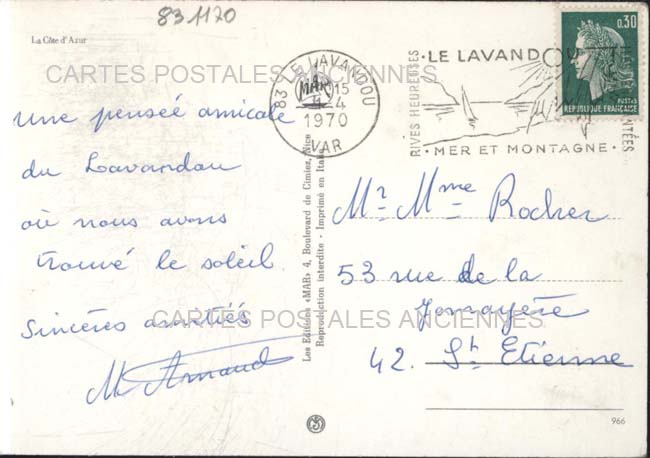 831170
La Côte d'Azur
CARTES POSTALES ANCIENNES
une penseé amicale
du Lavandou
où nous avons
trouvé le soleil
Sincères amitiés
M Armand
83 LE LAVANDOU
15
4
1970
VAR
RIVES HEUREUSES
LE LAVANDOU
MER ET MONTAGNE
0,30
POSTES
REPUBLIQUE FRANÇAISE
Les Editions «MAR» 4, Boulevard de Cimiez, Nice
Reproduction interdite - Imprimé en Italie
Mr Mme Rocher
53 rue de la
42. St Etienne
CARTES POSTALES ANCIENNES
966